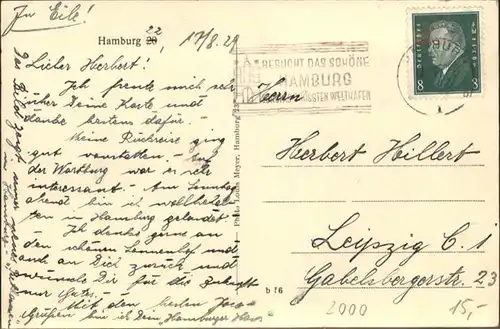 In Eile!
Hamburg 20, 22
17/8. 29
Lieber Herbert!
Ich freute mich sehr
über Deine Karte und
danke bestens dafür. -
Meine Rückreise ging
gut vonstatten. - Auf
der Wartburg war es sehr
interessant. - Am Sonntag
abend bin ich wohlbehal-
ten in Hamburg gelandet. -
Ich denke gerne an
den schönen und
an Dich zurück und
wünsche Dir für die Zukunft
nur Gutes.
Mit den besten
Grüßen bin ich Dein "Hamburger Hans"
Das Bild zeigt einen
in Hamburg.
Photo Meyer, Hamburg
BESUCHT DAS SCHÖNE
HAMBURG
GRÖSSTEN WELTHAFEN
HAMBURG
DEUTSCHES REICH
8 8
Herrn
Herbert Hillert
Leipzig C. 1
Gabelsbergerstr. 23
b 76
2000
15,-